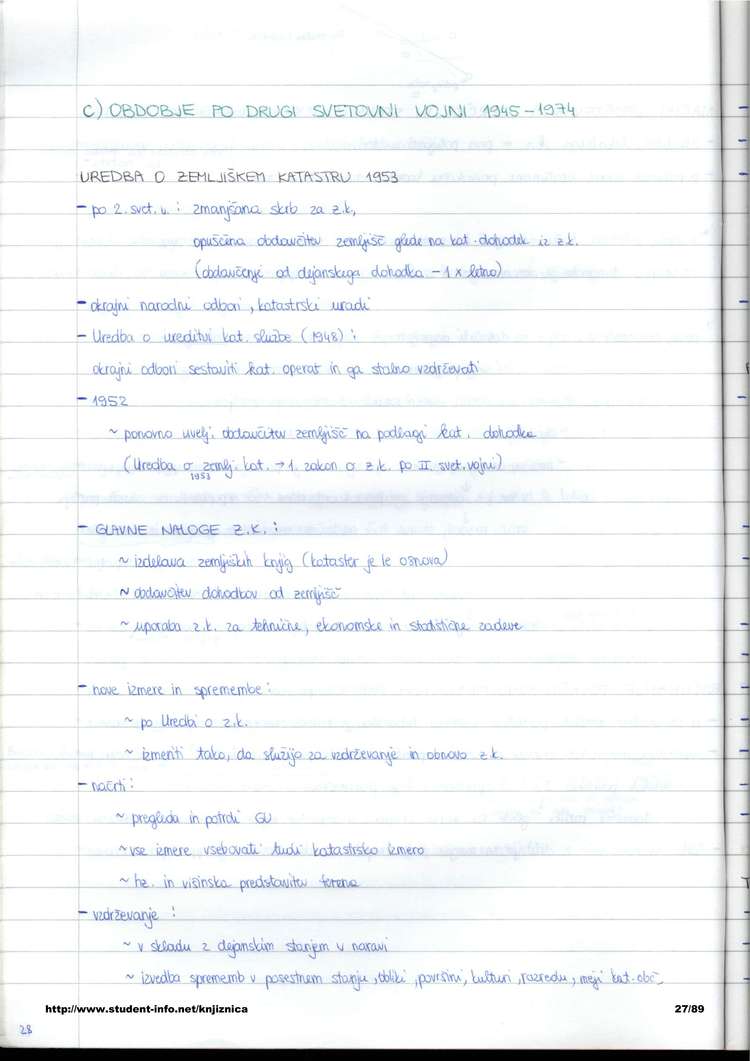 C) OBDOBJE PO DRUGI SVETOVNI VOJNI 1945-1974
UREDBA O ZEMLJIŠKEM KATASTRU 1953
- po 2. svet. v. : zmanjšana skrb za z.k,
opuščena obdavčitev zemljišč glede na kat. dohodek iz z.k.
(obdavčenje od dejanskega dohodka - 1 x letno)
- okrajni narodni odbori, katastrski uradi
- Uredba o ureditvi kat. službe (1948) :
okrajni odbori sestaviti kat. operat in ga stalno vzdrževati
- 1952
~ ponovno uvelj. obdavčitev zemljišč na podlagi kat. dohodka
(Uredba o zemlj. kat. → 1. zakon o z.k. po II. svet. vojni)
1953
- GLAVNE NALOGE Z.K. :
~ izdelava zemljiških knjig (kataster je le osnova)
~ obdavčitev dohodkov od zemljišč
~ uporaba z.k. za tehnične, ekonomske in statistične zadeve
- nove izmere in spremembe :
~ po Uredbi o z.k.
~ izmeriti tako, da služijo za vzdrževanje in obnovo z.k.
- načrti :
~ pregleda in potrdi GU
~ vse izmere vsebovati tudi katastrsko izmero
~ hz. in višinska predstavitev terena
- vzdrževanje :
~ v skladu z dejanskim stanjem v naravi
~ izvedba sprememb v posestnem stanju, obliki, površini, kulturi, razredu, meji kat. obč.
http://www.student-info.net/knjiznica
27/89
28